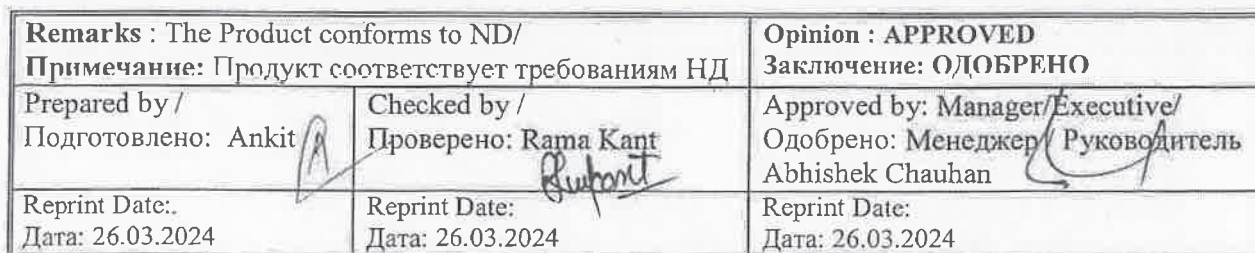 Remarks : The Product conforms to ND/
Примечание: Продукт соответствует требованиям НД
Opinion : APPROVED
Заключение: ОДОБРЕНО
Prepared by /
Подготовлено: Ankit
Checked by /
Проверено: Rama Kant
Approved by: Manager/Executive/
Одобрено: Менеджер / Руководитель
Abhishek Chauhan
Reprint Date:.
Дата: 26.03.2024
Reprint Date:
Дата: 26.03.2024
Reprint Date:
Дата: 26.03.2024